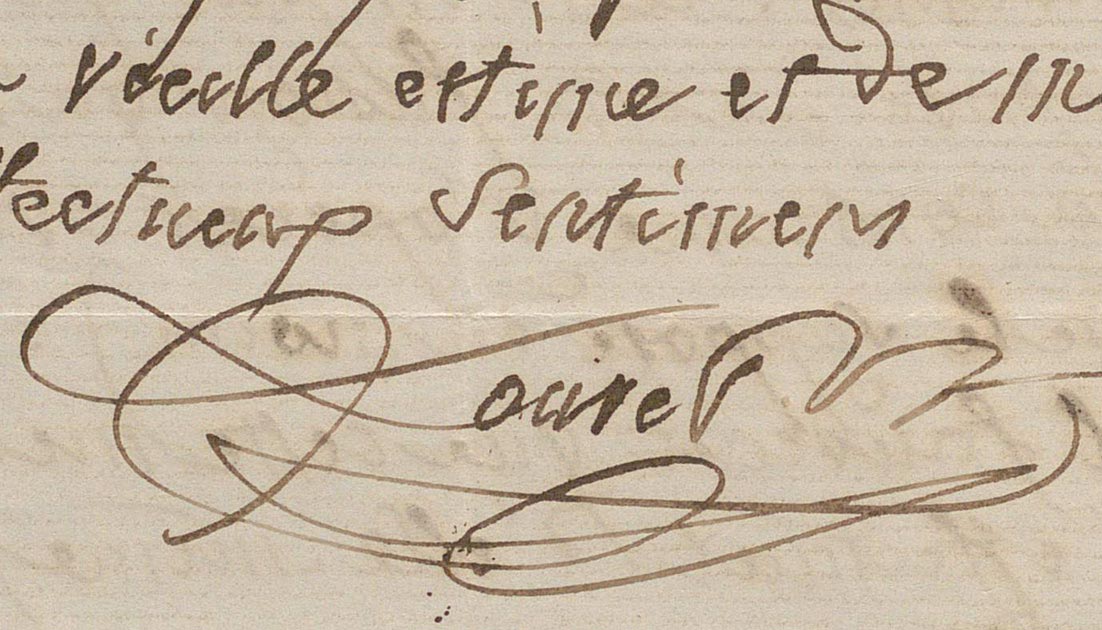 vieille estime et de m
fectueux sentimens
Louvet